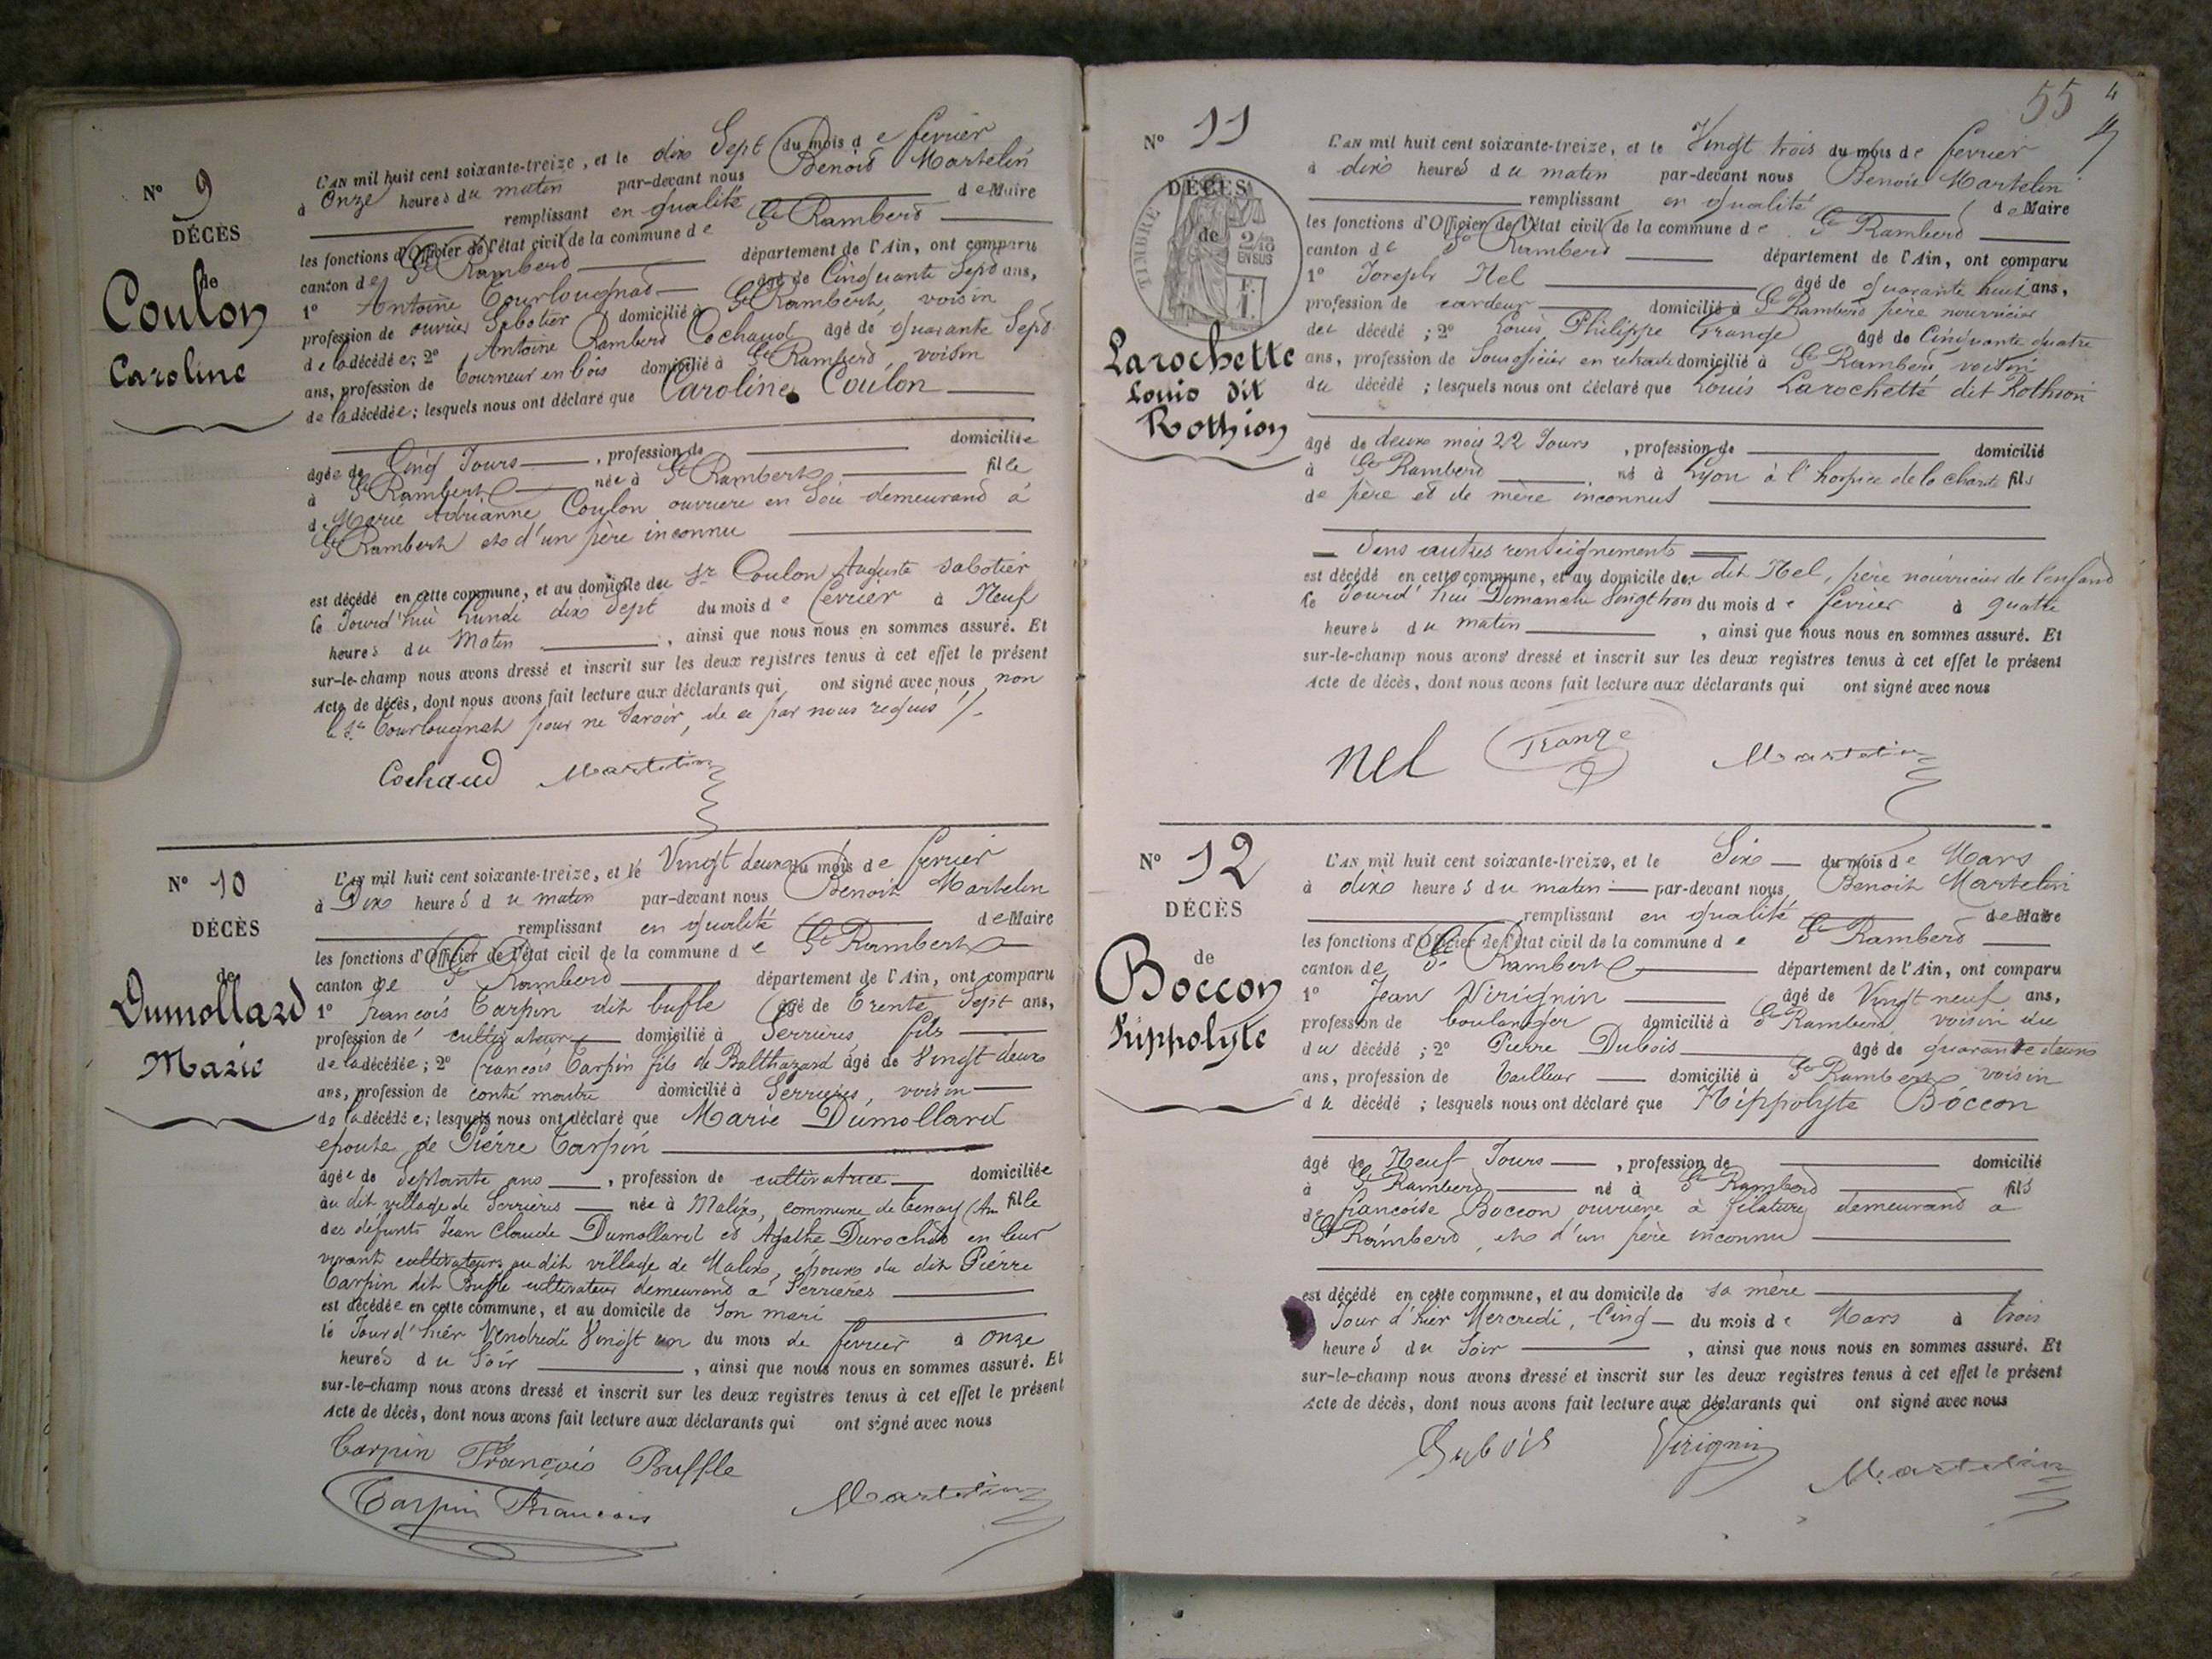 N° 9
DÉCÈS
de
Coulon
Caroline
L'AN mil huit cent soixante-treize, et le dix Sept du mois de fevrier
à Onze heures du matin par-devant nous Benoit Martelin
remplissant en qualité de Maire
les fonctions d'Officier de l'état civil de la commune de St Rambert
canton de St Rambert département de l'Ain, ont comparu
1° Antoine Tourlougnat âgé de Cinquante Sept ans,
profession de ouvrier Sabotier domicilié à St Rambert, voisin
de la décédée; 2° Antoine Rambert Cochaud âgé de quarante Sept
ans, profession de tourneur en bois domicilié à St Rambert, voisin
de la décédée; lesquels nous ont déclaré que Caroline Coulon
âgée de Cinq Jours, profession de domiciliée
à St Rambert née à St Rambert fille
de Marie Adrianne Coulon ouvriere en Soie demeurant à
St Rambert et d'un père inconnu
est décédé en cette commune, et au domicile du Sr Coulon Auguste sabotier
le Jourd'hui Lundi dix Sept du mois de fevrier à Neuf
heures du Matin, ainsi que nous nous en sommes assuré. Et
sur-le-champ nous avons dressé et inscrit sur les deux registres tenus à cet effet le présent
Acte de décès, dont nous avons fait lecture aux déclarants qui ont signé avec nous, non
le Sr Tourlougnat pour ne Savoir, de ce par nous requis
Cochaud Martelin
N° 10
DÉCÈS
de
Dumollard
Marie
L'AN mil huit cent soixante-treize, et le Vingt deux du mois de fevrier
à Dix heures du matin par-devant nous Benoit Martelin
remplissant en qualité de Maire
les fonctions d'Officier de l'état civil de la commune de St Rambert
canton de St Rambert département de l'Ain, ont comparu
1° francois Carpin dit buffle âgé de trente Sept ans,
profession de cultivateur domicilié à Serrières, fils
de la décédée; 2° francois Carpin fils de Balthazard âgé de Vingt deux
ans, profession de contre maitre domicilié à Serrières, voisin
de la décédée; lesquels nous ont déclaré que Marie Dumollard
epouse de Piérre Carpin
âgée de Septante ans, profession de cultivatrice domiciliée
au dit village de Serrières née à Malix, commune de Tenay (Ain fille
des défunts Jean Claude Dumollard et Agathe Durochat en leur
vivant cultivateurs au dit village de Malix, épouse du dit Piérre
Carpin dit Buffle cultivateur demeurant à Serrières
est décédée en cette commune, et au domicile de Son mari
le Jour d'hier Vendredi Vingt un du mois de fevrier à Onze
heures du Soir, ainsi que nous nous en sommes assuré. Et
sur-le-champ nous avons dressé et inscrit sur les deux registres tenus à cet effet le présent
Acte de décès, dont nous avons fait lecture aux déclarants qui ont signé avec nous
Carpin François Buffle
Carpin Francois Martelin
55 4
N° 11
DÉCÈS
de
TIMBRE
2/10
EN SUS
F.
1.
Larochette
Louis dit
Rothion
L'AN mil huit cent soixante-treize, et le Vingt trois du mois de fevrier
à dix heures du matin par-devant nous Benoit Martelin
remplissant en qualité de Maire
les fonctions d'Officier de l'état civil de la commune de St Rambert
canton de St Rambert département de l'Ain, ont comparu
1° Joseph Nel âgé de quarante huit ans,
profession de cardeur domicilié à St Rambert père nourricier
du décédé; 2° Louis Philippe Grange âgé de Cinquante quatre
ans, profession de Sousoficier en retraite domicilié à St Rambert, voisin
du décédé; lesquels nous ont déclaré que Louis Larochette dit Rothion
âgé de deux mois 22 Jours, profession de domicilié
à St Rambert né à Lyon à l'hospice de la charité fils
de père et de mère inconnus
Sans autres renseignements
est décédé en cette commune, et au domicile du dit Nel, père nourricier de l'enfant
le Jourd'hui Dimanche Vingt trois du mois de fevrier à quatre
heures du matin, ainsi que nous nous en sommes assuré. Et
sur-le-champ nous avons dressé et inscrit sur les deux registres tenus à cet effet le présent
Acte de décès, dont nous avons fait lecture aux déclarants qui ont signé avec nous
nel Grange Martelin
N° 12
DÉCÈS
de
Boccon
hippolyte
L'AN mil huit cent soixante-treize, et le Six du mois de Mars
à dix heures du matin par-devant nous Benoit Martelin
remplissant en qualité de Maire
les fonctions d'Officier de l'état civil de la commune de St Rambert
canton de St Rambert département de l'Ain, ont comparu
1° Jean Virignin âgé de Vingt neuf ans,
profession de boulanger domicilié à St Rambert, voisin du
du décédé; 2° Pierre Dubois âgé de quarante deux
ans, profession de tailleur domicilié à St Rambert voisin
du décédé; lesquels nous ont déclaré que Hippolyte Boccon
âgé de Neuf Jours, profession de domicilié
à St Rambert né à St Rambert fils
de françoise Boccon ouvrière à filature demeurant à
St Rambert, et d'un père inconnu
est décédé en cette commune, et au domicile de sa mère
Jour d'hier Mercredi, Cinq du mois de Mars à trois
heures du Soir, ainsi que nous nous en sommes assuré. Et
sur-le-champ nous avons dressé et inscrit sur les deux registres tenus à cet effet le présent
Acte de décès, dont nous avons fait lecture aux déclarants qui ont signé avec nous
Dubois Virignin
Martelin